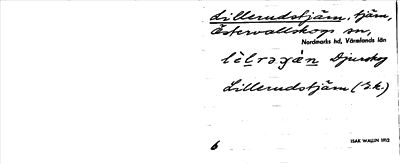 Lillerudstjärn, tjärn,
Östervallskogs sn,
Nordmarks hd, Värmlands län
Djurskog
Lillerudstjärn (G.k.)
6 ISAK WALLIN 1912